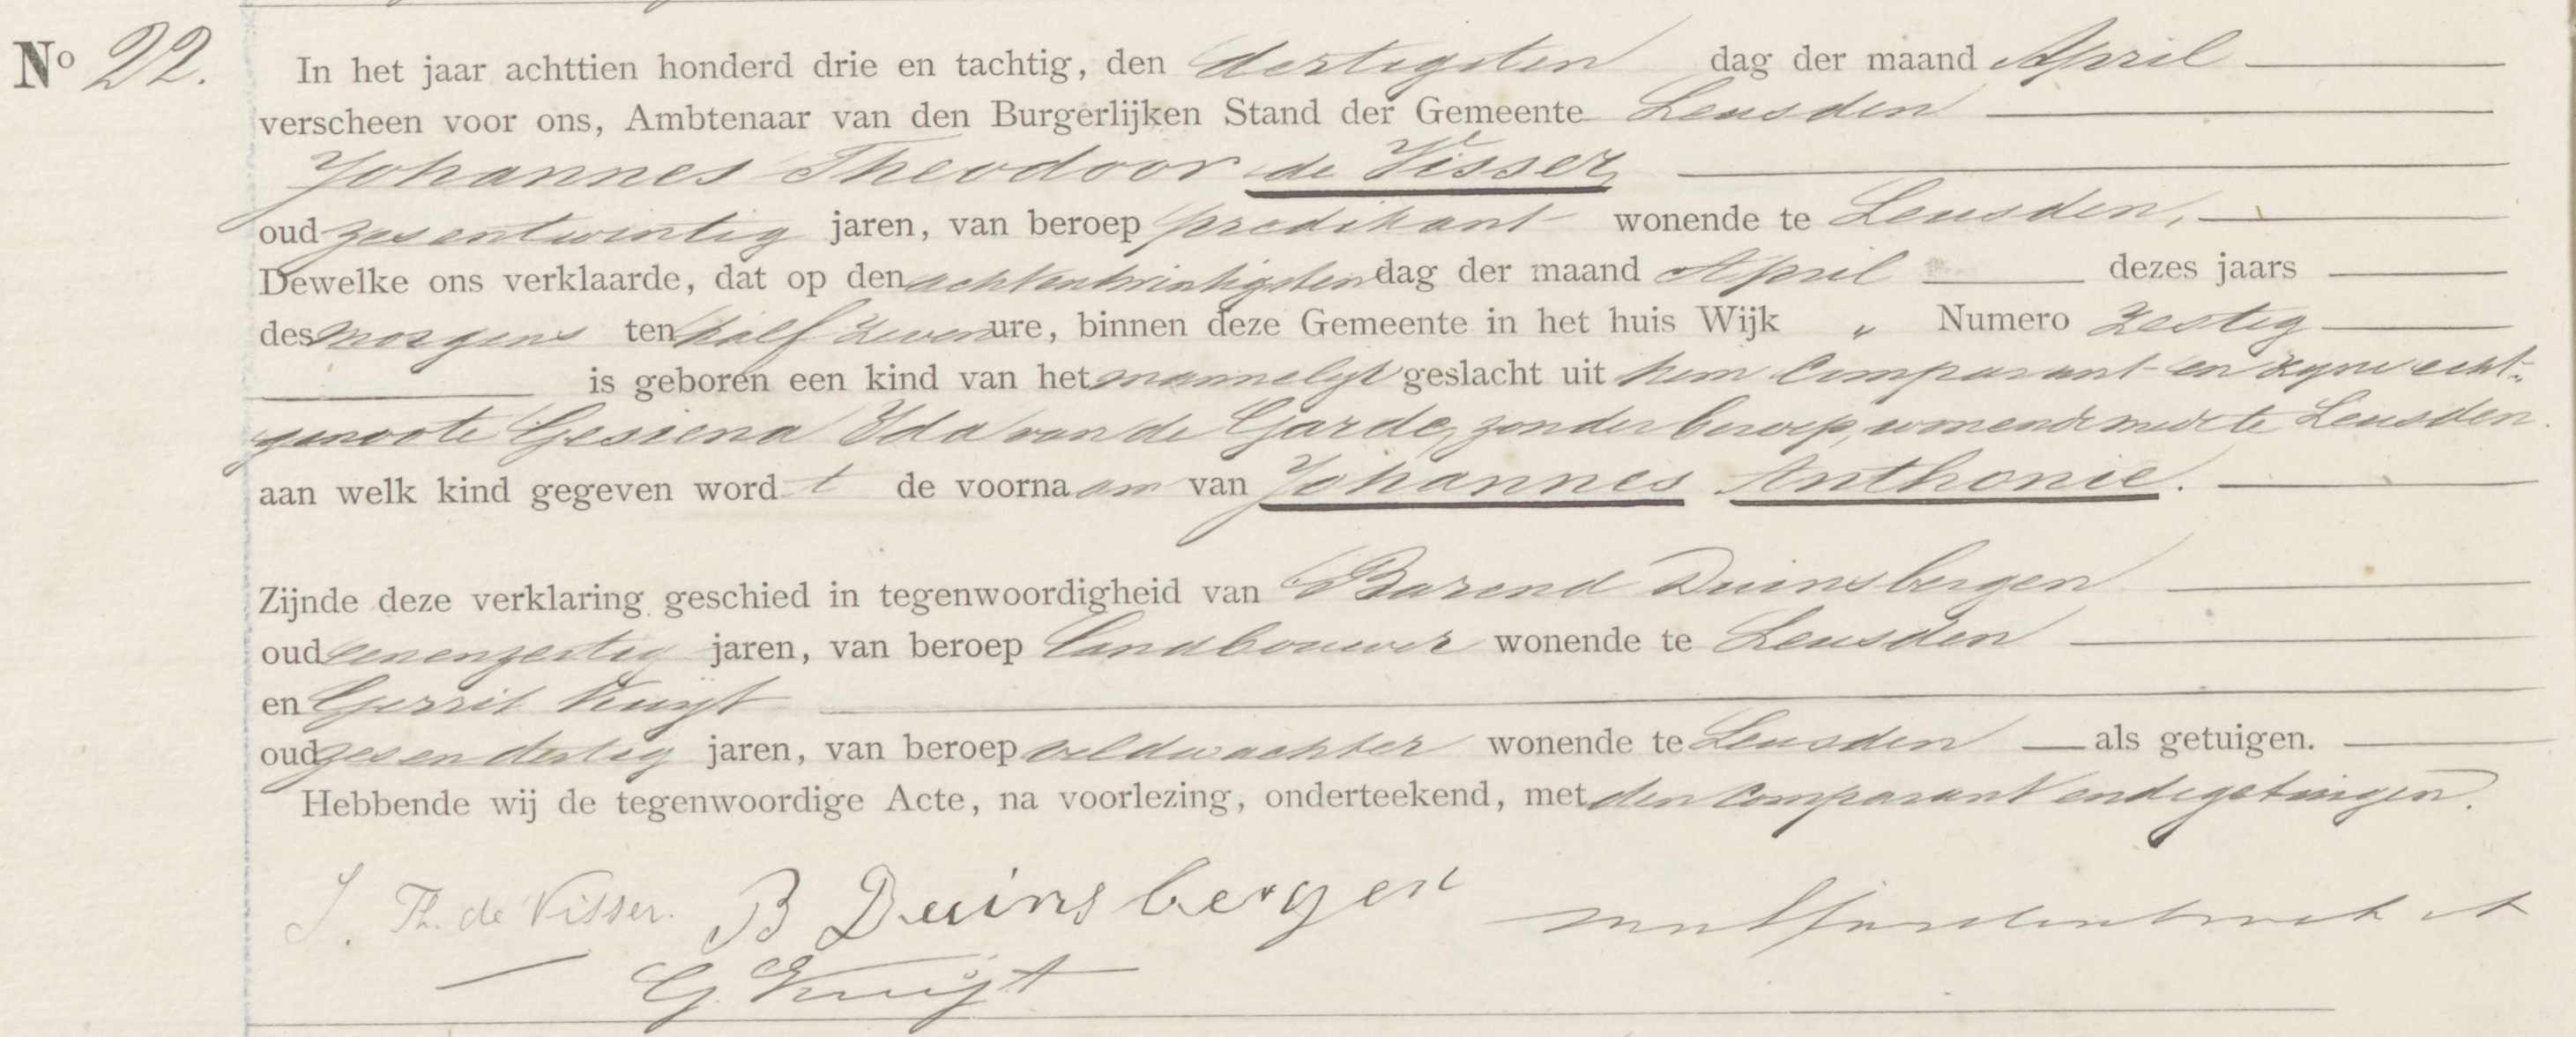 No 22.
In het jaar achttien honderd drie en tachtig, den dertigsten dag der maand April
verscheen voor ons, Ambtenaar van den Burgerlijken Stand der Gemeente Leusden
Johannes Theodoor de Visser,
oud zesentwintig jaren, van beroep predikant wonende te Leusden,
Dewelke ons verklaarde, dat op den achtentwintigsten dag der maand April dezes jaars
des morgens ten half zeven ure, binnen deze Gemeente in het huis Wijk „ Numero Zestig
is geboren een kind van het mannelijk geslacht uit hem Comparant en zijne echt-
genoote Gesiena Ida van de Garde, zonder beroep, wonende mede te Leusden.
aan welk kind gegeven wordt de voornaam van Johannes Anthonie.
Zijnde deze verklaring geschied in tegenwoordigheid van Barend Duinsbergen
oud eenenzestig jaren, van beroep landbouwer wonende te Leusden
en Gerrit Kuijt
oud zesendertig jaren, van beroep veldwachter wonende te Leusden als getuigen.
Hebbende wij de tegenwoordige Acte, na voorlezing, onderteekend, met den Comparant en de getuigen.
J. Th. de Visser. B Duinsbergen
G Kuijt